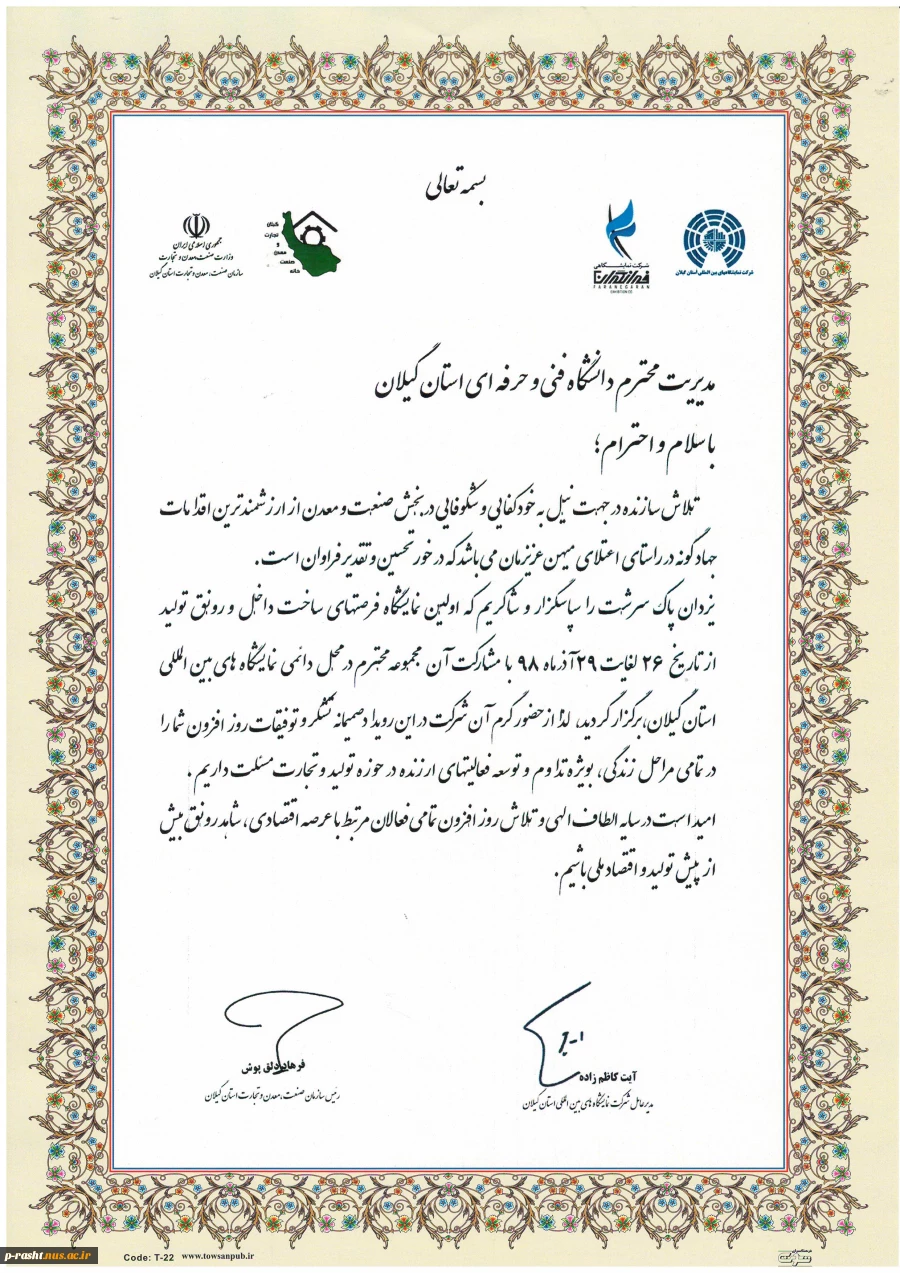 بسمه تعالی
شرکت نمایشگاههای بین المللی استان گیلان
شرکت نمایشگاهی
فرانگاران
FARANEGARAN
EXHIBITION CO
گیلان
تجارت
و
معدن
صنعت
خانه
جمهوری اسلامی ایران
وزارت صنعت، معدن و تجارت
سازمان صنعت، معدن و تجارت استان گیلان
مدیریت محترم دانشگاه فنی و حرفه ای استان گیلان
با سلام و احترام؛
تلاش سازنده در جهت نیل به خودکفایی و شکوفایی در بخش صنعت و معدن از ارزشمندترین اقدامات
جهادگونه در راستای اعتلای میهن عزیزمان می باشد که در خور تحسین و تقدیر فراوان است.
یزدان پاک سرشت را سپاسگزار و شاکریم که اولین نمایشگاه فرصتهای ساخت داخل و رونق تولید
از تاریخ ۲۶ لغایت ۲۹ آذر ماه ۹۸ با مشارکت آن مجموعه محترم در محل دائمی نمایشگاه های بین المللی
استان گیلان، برگزار گردید، لذا از حضور گرم آن شرکت در این رویداد صمیمانه تشکر و توفیقات روز افزون شما را
در تمامی مراحل زندگی، بویژه تداوم و توسعه فعالیتهای ارزنده در حوزه تولید و تجارت مسئلت داریم.
امید است در سایه الطاف الهی و تلاش روز افزون تمامی فعالان مرتبط با عرصه اقتصادی، شاهد رونق بیش
از پیش تولید و اقتصاد ملی باشیم.
آیت کاظم زاده
مدیرعامل شرکت نمایشگاه های بین المللی استان گیلان
فرهاد دلق پوش
رئیس سازمان صنعت، معدن و تجارت استان گیلان
p-rasht.nus.ac.ir
Code: T-22 www.towsanpub.ir